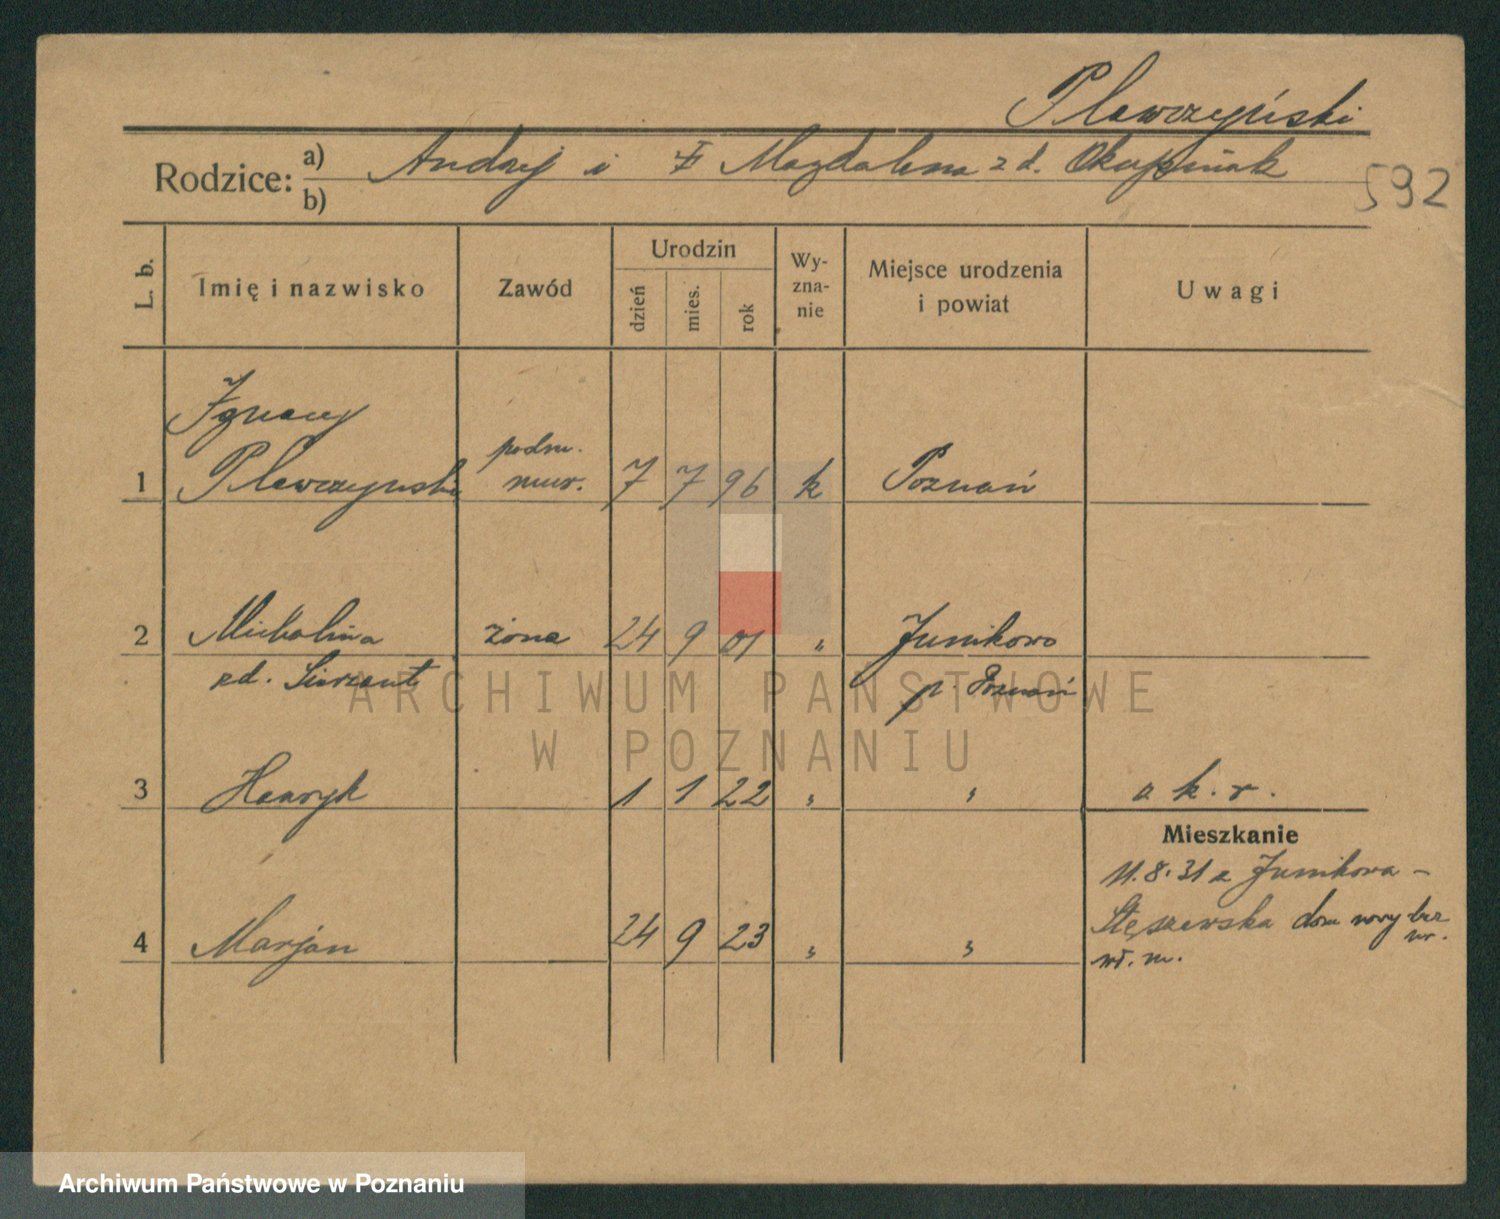 Plewczyński
Rodzice: a) Andrzej i Magdalena z d. Okupniak
b)
592
L. b.
Imię i nazwisko
Zawód
Urodzin
dzień
mies.
rok
Wy-
zna-
nie
Miejsce urodzenia
i powiat
Uwagi
Ignacy
podm.
1 Plewczyński mur. 7 7 96 k Poznań
2 Michalina żona 24 9 01 " Junikowo
zd. Sierzant p. Poznań
3 Henryk 1 1 22 " " a k. r.
Mieszkanie
11.8.31 z Junikowa –
Stęszewska dom nowy bez
nr.
4 Marjan 24 9 23 " "
wł. m.
ARCHIWUM PAŃSTWOWE
W POZNANIU
Archiwum Państwowe w Poznaniu